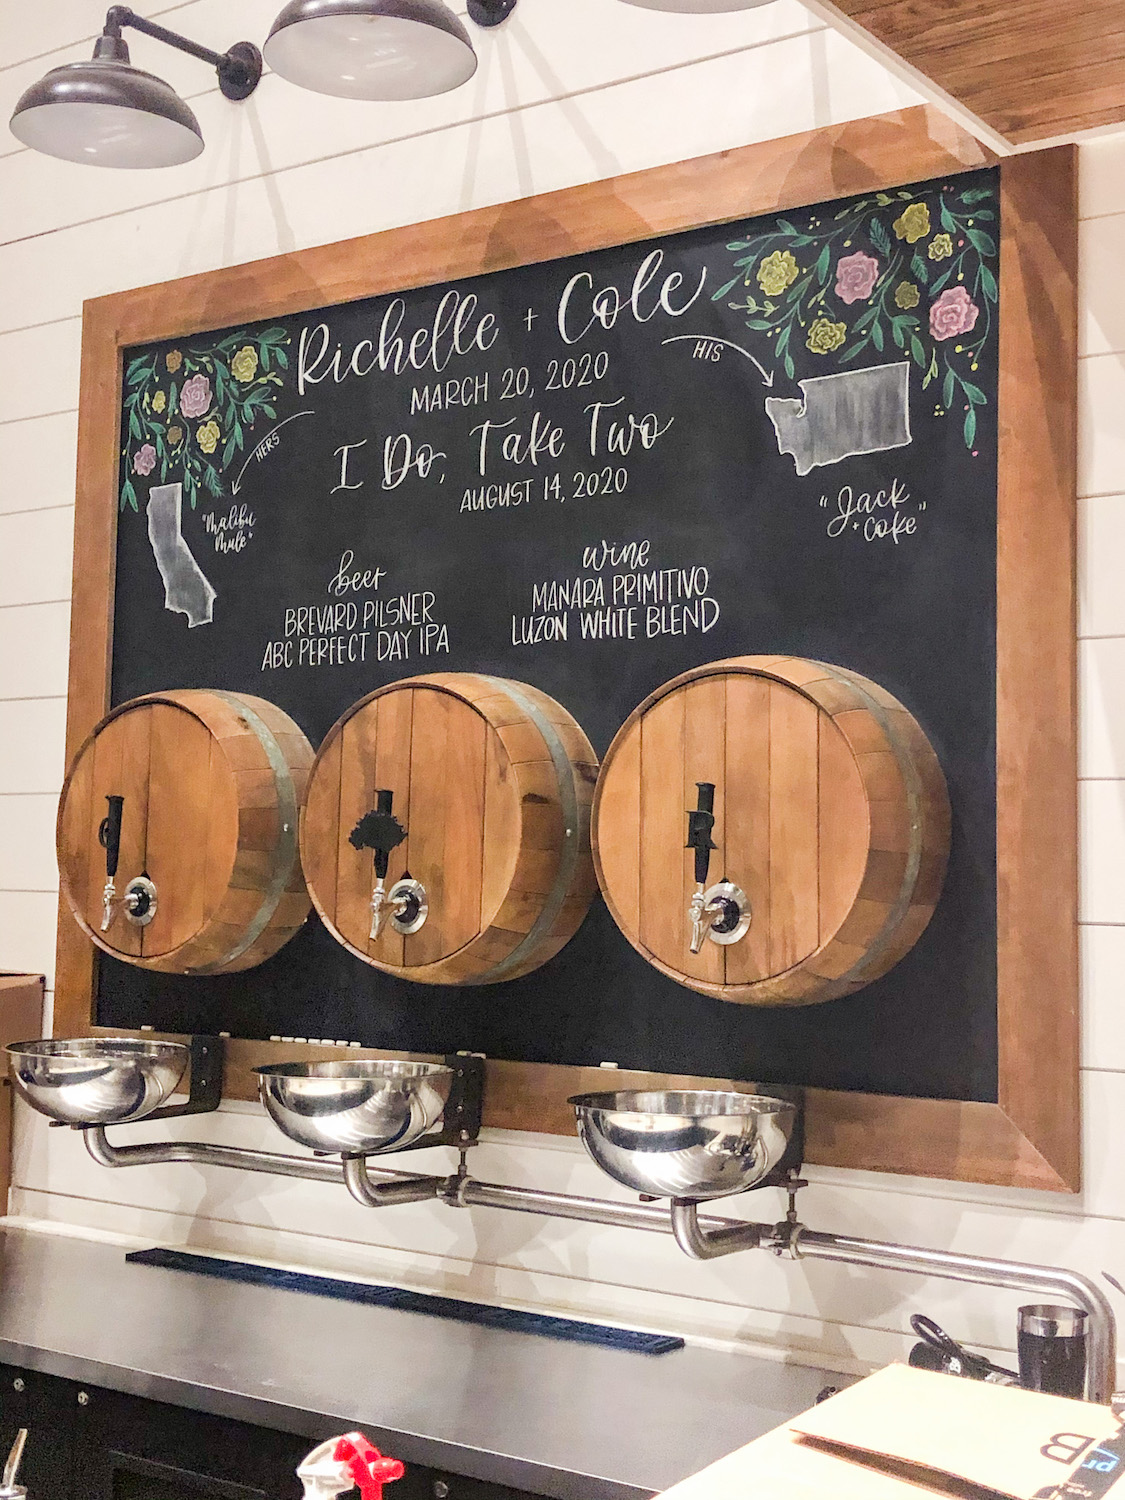 Richelle + Cole
MARCH 20, 2020
I Do, Take Two
AUGUST 14, 2020
HERS
"Malibu
Mule"
HIS
"Jack
+ Coke"
beer
BREVARD PILSNER
ABC PERFECT DAY IPA
wine
MANARA PRIMITIVO
LUZON WHITE BLEND
R
B